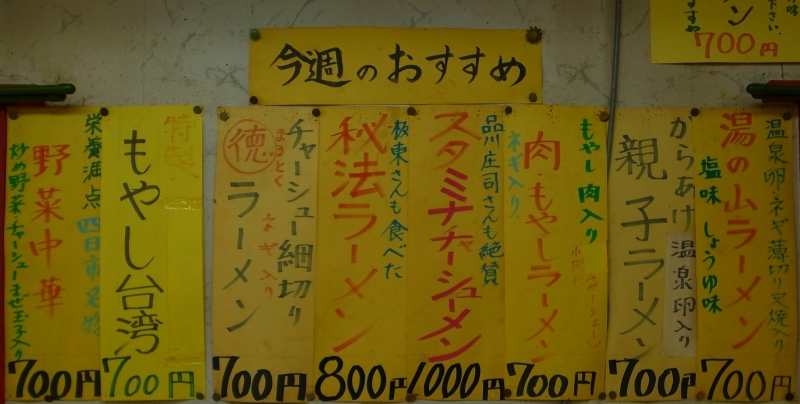 今週のおすすめ
ン
700円
温泉卵ネギ薄切り叉焼入り
湯の山ラーメン
塩味 しょうゆ味
700円
からあげ
親子ラーメン
温泉卵入り
700円
もやし肉入り
肉・もやしラーメン
ネギ入り
700円
品川庄司さんも絶賛
スタミナチャーシューメン
1000円
板東さんも食べた
秘法ラーメン
800円
チャーシュー細切り
まるとく
徳ラーメン
ネギ入り
700円
特製
もやし台湾
700円
栄養満点 四日市名物
野菜中華
炒め野菜チャーシューまぜ玉子入り
700円